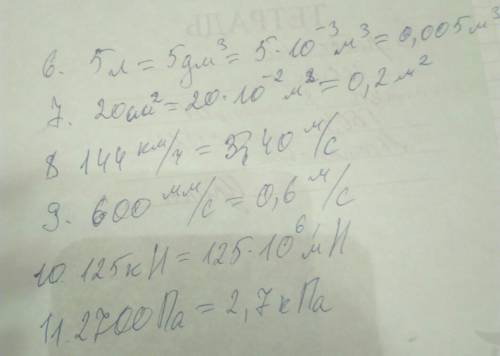 6. 5л = 5дм³ = 5·10⁻³м³ = 0,005м³
7. 20см² = 20·10⁻² м² = 0,2м²
8 144 км/ч = 40 м/с
9. 600 мм/с = 0,6 м/с
10. 125кН = 125·10⁶ мН
11. 2700Па = 2,7кПа